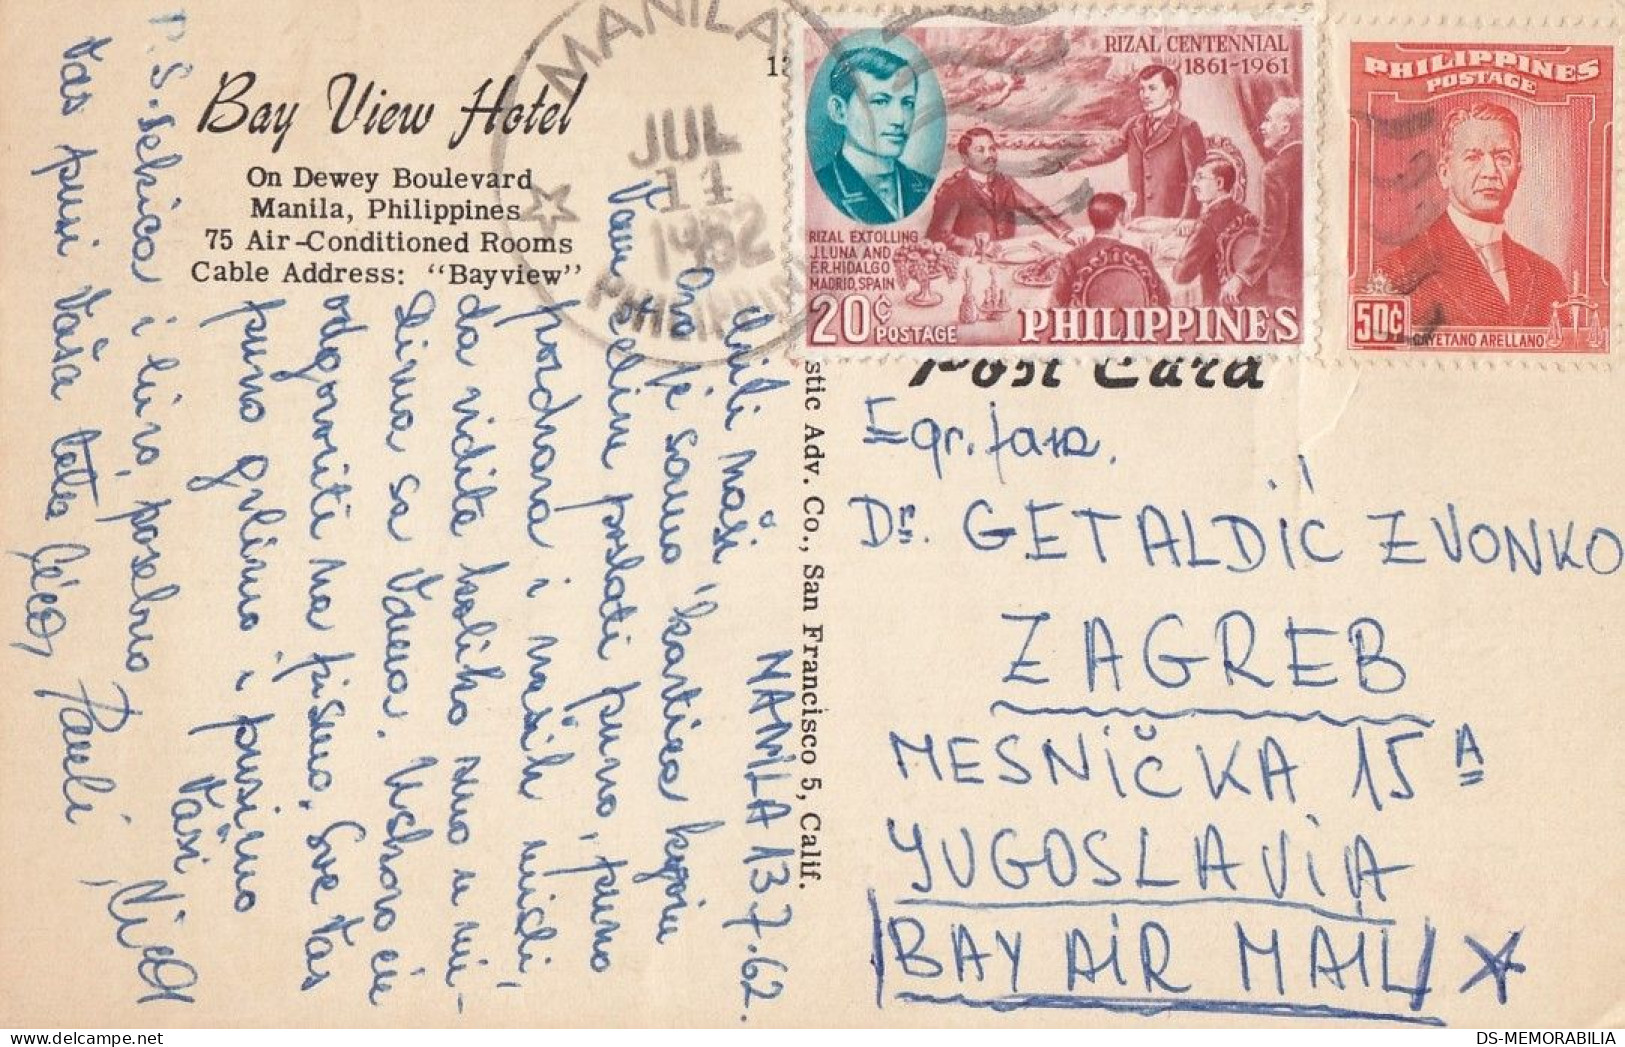 Bay View Hotel
On Dewey Boulevard
Manila, Philippines
75 Air-Conditioned Rooms
Cable Address: "Bayview"
MANILA
JUL
1962
PHILIPPIN
RIZAL CENTENNIAL
1861-1961
RIZAL EXTOLLING
J.LUNA AND
F.R.HIDALGO
MADRID, SPAIN
20¢ POSTAGE PHILIPPINES
PHILIPPINES
POSTAGE
50¢
CAYETANO ARELLANO
Post Card
stic Adv. Co., San Francisco 5, Calif.
MANILA 13.7.62.
naši
Ovo je samo kartica kojom
Vam želim poslati puno, puno
pozdrava i naših
da vidite koliko smo u mi-
sa Vama. Uskoro će
odgovoriti na pismo. Sve Vas
puno grlimo i pusimo
Vaši
P.S. Sekica i Ciro, posebno
Vas pusi Vaša teta
Egr. fam.
Dr. GETALDIĆ ZVONKO
ZAGREB
MESNIČKA 15 A
YUGOSLAVIA
BAY AIR MAIL
DS-MEMORABILIA